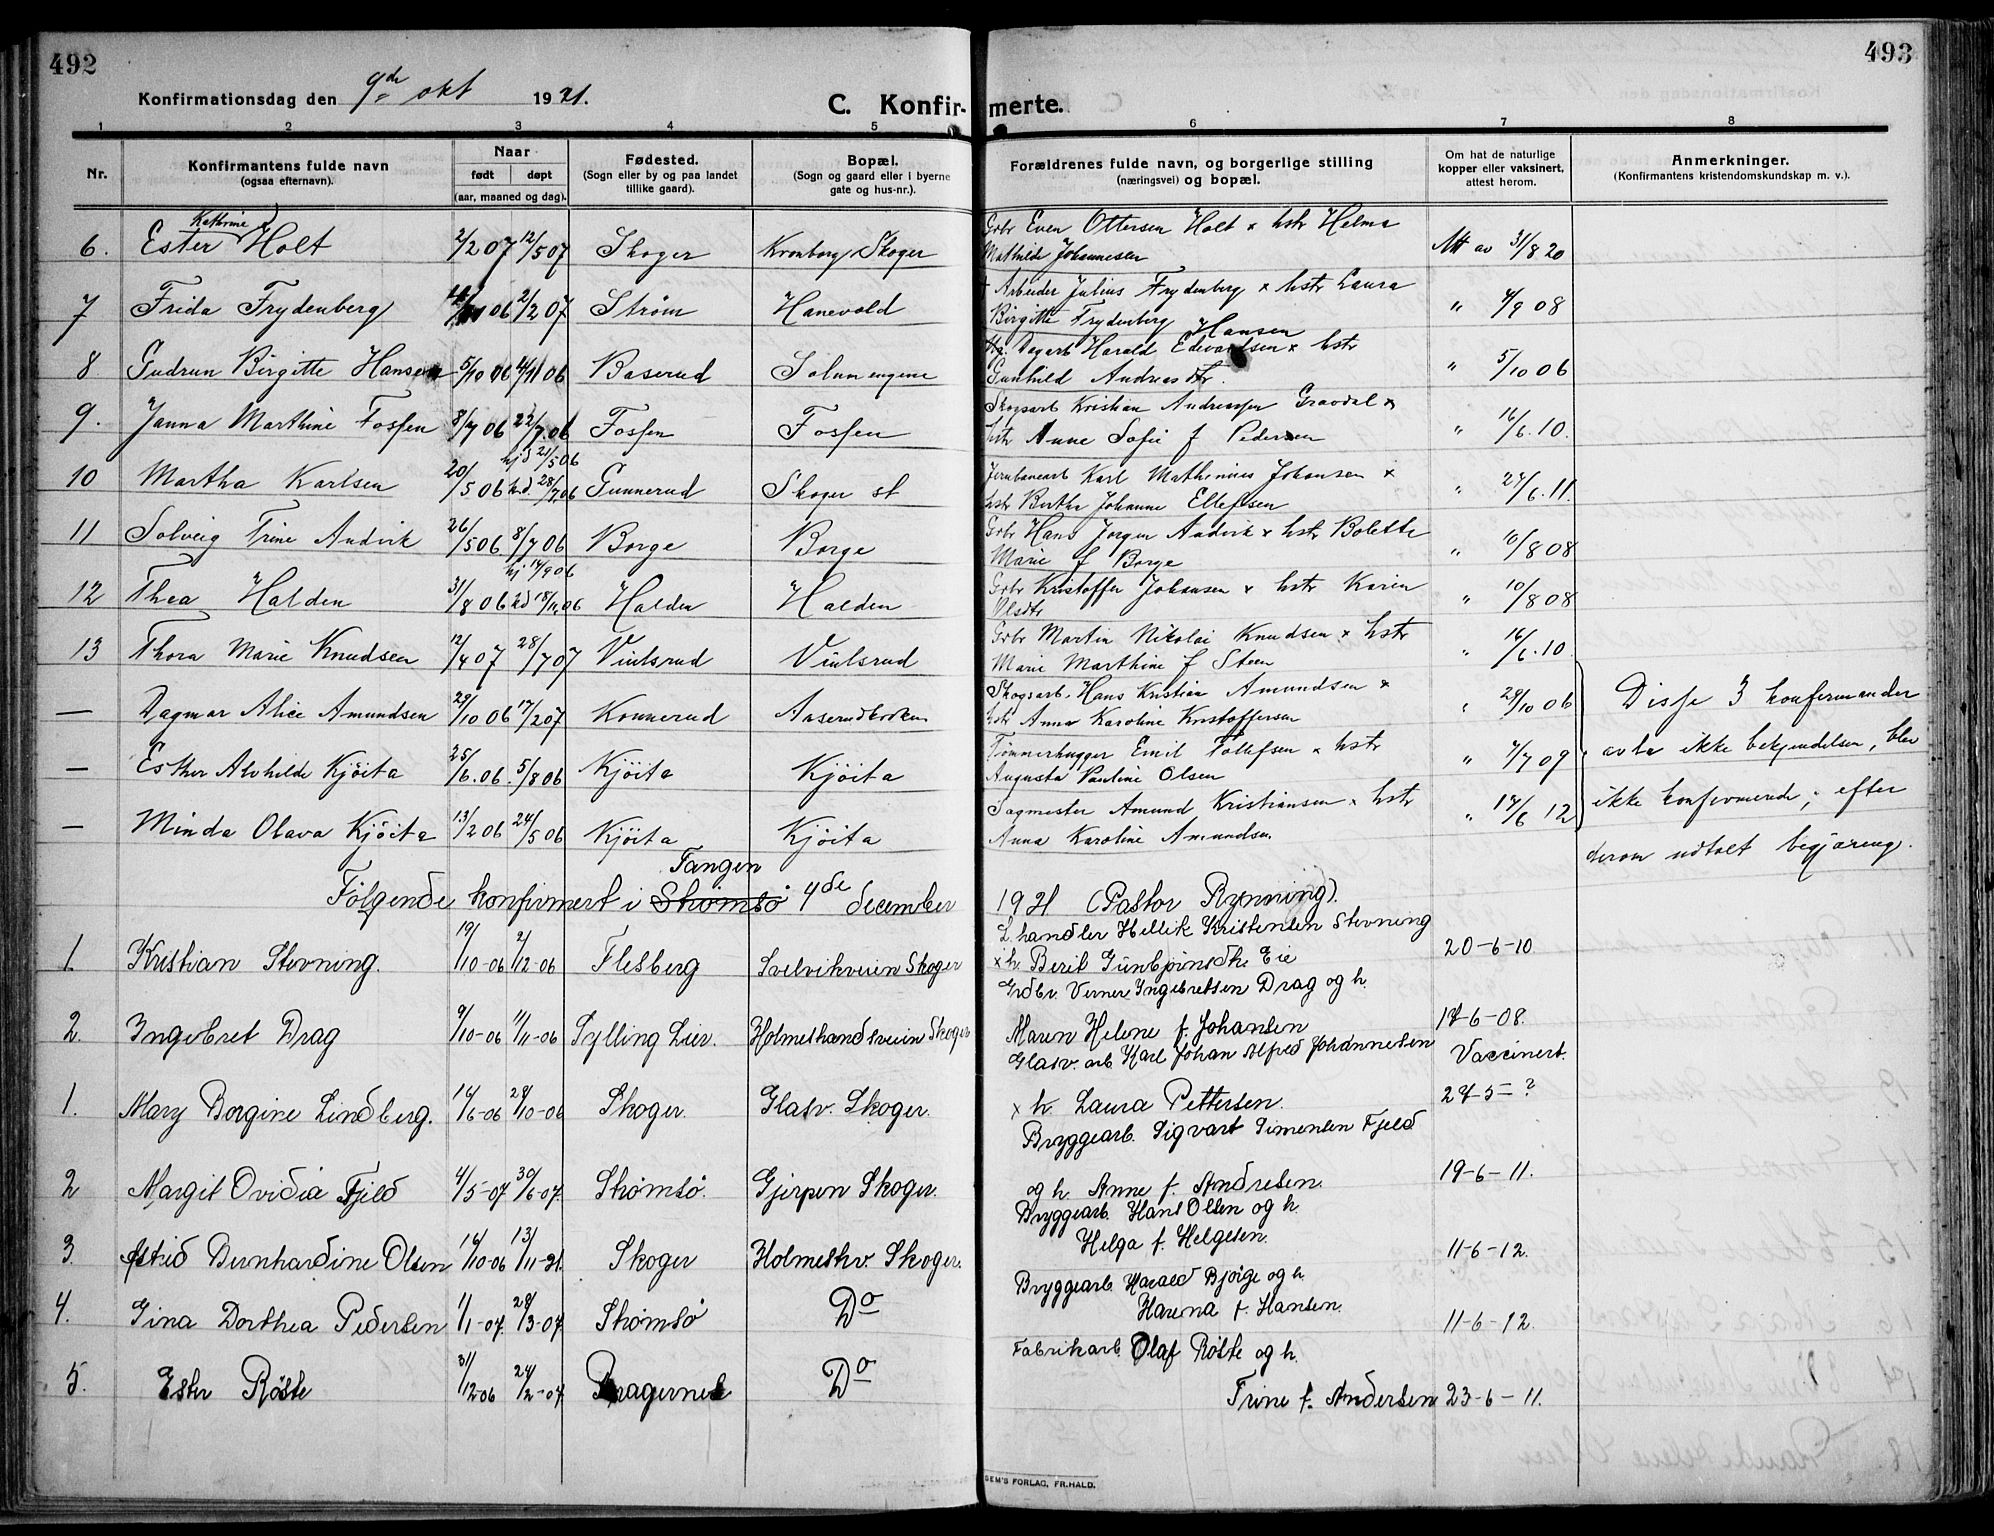 492
493
Konfirmationsdag den 9de okt 1921.
C. Konfir-merte.
1 2 3 4 5 6 7 8
Nr.
Konfirmantens fulde navn
(ogsaa efternavn).
Naar
født døpt
(aar, maaned og dag).
Fødested.
(Sogn eller by og paa landet
tillike gaard).
Bopæl.
(Sogn og gaard eller i byerne
gate og hus-nr.).
Forældrenes fulde navn, og borgerlige stilling
(næringsvei) og bopæl.
Om hat de naturlige
kopper eller vaksinert,
attest herom.
Anmerkninger.
(Konfirmantens kristendomskundskap m. v.).
6. Ester Kathrine Holt 2/2 07 12/5 07 Skoger Kronborg, Skoger Grbr Even Ottersen Holt x hstr Helma
Mathilde Johannesen Att av 31/8 20
7 Frida Frydenberg 06 2/2 07 Strøm Hanevold † Arbeider Julius Frydenberg x hstr Laura
Birgitte Frydenberg " 4/9 08
8. Gudrun Birgitte Hansen 5/10 06 4/11 06 Baserud Solumengene Dagarb Harald Edvardsen Hansen x hstr
Gunhild Andreasdtr. " 5/10 06
9. Janna Marthine Fossen 8/7 06 22/7 06 Fossen Fossen Skogsarb Kristian Andreassen Gravdal x
hstr Anne Sofie f Pedersen " 16/6 10.
10 Martha Karlsen 20/5 06 hjd 21/5 06 kd. 28/7 06 Gunnerud Skoger st Jernbanearb Karl Mathinius Johansen x
hstr Berthe Johanne Ellefsen " 24/6 11.
11 Solveig Trine Andvik 26/5 06. 8/7 06 Borge Borge Grbr Hans Jørgen Andvik x hstr Bolette
Marie f Borge " 10/8 08
12 Thea Halden 31/8 06 hj 14/9 06 kd 18/11 06 Halden Halden Grbr Kristoffer Johansen x hstr Karen
Olsdtr " 10/8 08
13 Thora Marie Knudsen 12/4 07 28/7 07 Vinlsrud Vinlsrud Grbr Martin Nikolai Knudsen x hstr
Marie Marthine f Steen " 16/6 10.
— Dagmar Alice Amundsen 29/10 06 17/2 07 Konnerud Aaserudbraaten Skogsarb. Hans Kristian Amundsen x
hstr Anna Karoline Kristoffersen " 29/10 06
— Esther Alvhilde Kjöita 25/6. 06. 5/8 06 Kjöita Kjöita Tømmerhugger Emil Tollefsen x hstr
Augusta Pauline Olsen " 7/7 09
— Minda Olava Kjöita 13/2 06 24/5 06 Kjöita Kjöita Sagmester Amund Kristiansen x hstr
Anna Karoline Amundsen " 14/6 12
Disse 3 konfirmander
avla ikke bekjendelsen, blev
ikke konfirmerede, efter
derom udtalt begjæring.
Følgende konfirmert i Strømsø Tangen 4de december 1921 (Pastor Rynning).
1. Kristian Stevning. 19/10-06 2/12-06 Flesberg Svelvikveien Skoger L. handler Hellik Kristensen Stevning
x h. Berit Gunbjørnsdtr. Eie 20-6-10.
2. Ingebret Drag 9/10-06 11/11-06 Sylling Lier. Holmestrandsveien Skoger Grdbr. Verner Ingebretsen Drag og h.
Maren Helene f. Johansen 18-6-08.
Vaccinert.
1. Mary Borgine Lindberg. 16/6-06 28/10-06 Skoger. Glasv. Skoger. Glasv. arb. Karl Johan Alfred Johannesen
x h. Laura Pettersen. 27-5-?
2 Margit Ovidia Fjeld 4/5-07 30/6-07. Strømsø. Gjerpen Skoger. Bryggearb. Sigvart Simensen Fjeld
og h. Anne f. Andresen. 19-6-11.
3. Astrid Bernhardine Olsen 16/10-06 13/11-21. Skoger Holmestrv. Skoger. Bryggearb. Hans Olsen og h.
Helga f. Helgesen. 11-6-12.
4. Gina Dorthea Pedersen 1/1-07. 28/3-07. Strømsø Do Bryggearb. Harald Bjöige og h.
Harena f. Hansen. 11-6-12.
5. Ester Röste 31/12-06 24/2-07 Bragernes Do Fabrikarb. Olaf Röste og h.
Trine f. Andersen 23-6-11.
GEM'S FORLAG, FR.HALD.